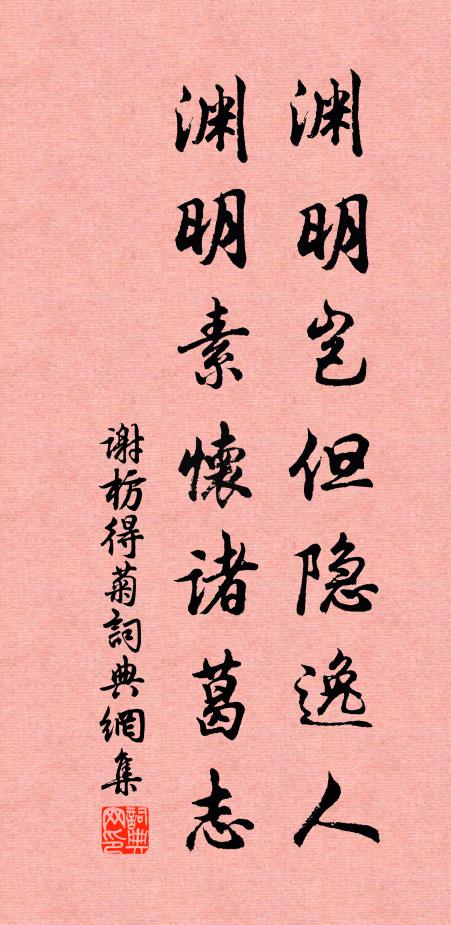 渊明岂但隐逸人
渊明素懷诸葛志
谢枋得菊詞典網集
詞典网印